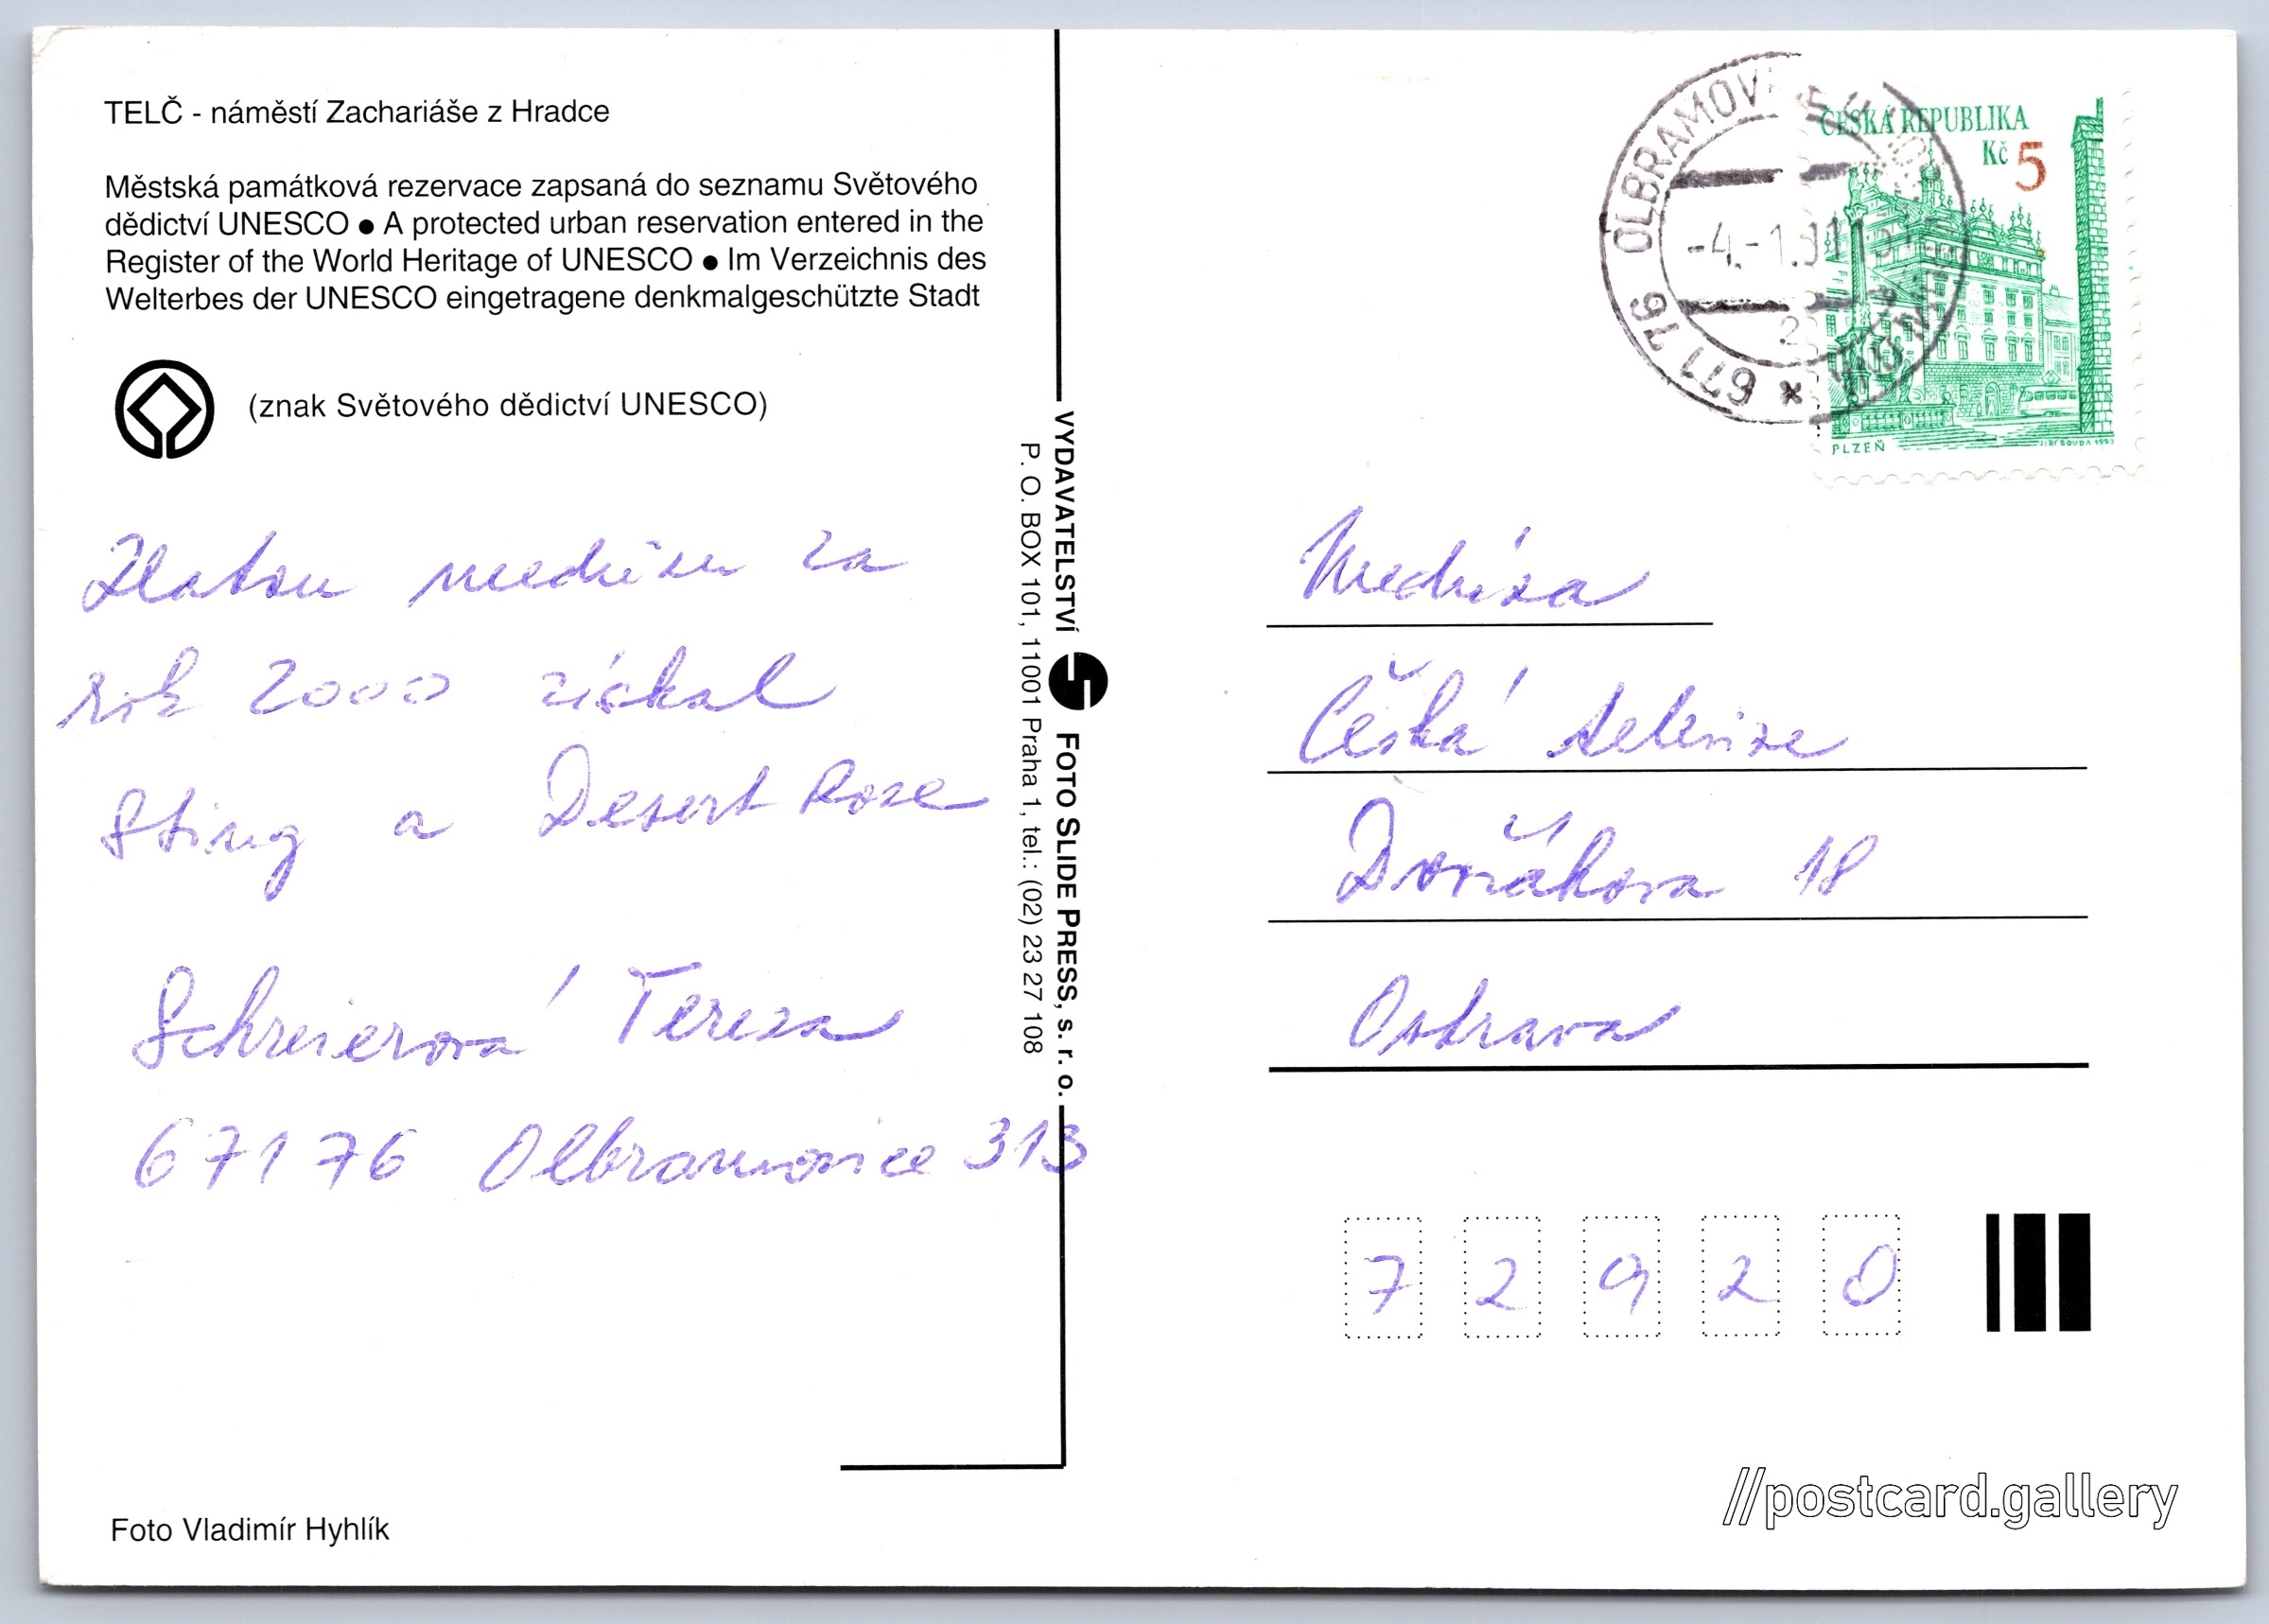 TELČ - náměstí Zachariáše z Hradce
Městská památková rezervace zapsaná do seznamu Světového
dědictví UNESCO ● A protected urban reservation entered in the
Register of the World Heritage of UNESCO ● Im Verzeichnis des
Welterbes der UNESCO eingetragene denkmalgeschützte Stadt
(znak Světového dědictví UNESCO)
Zlatou medúzu za
rok 2000 získal
Sting a Desert Rose
Schreierová Tereza
67176 Olbramovice 313
Foto Vladimír Hyhlík
VYDAVATELSTVÍ FOTO SLIDE PRESS, s. r. o.
P. O. BOX 101, 11001 Praha 1, tel.: (02) 23 27 108
ČESKÁ REPUBLIKA
Kč 5
PLZEŇ
JIŘÍ BOUDA 1993
671 76 OLBRAMOVICE U MOR.
-4.-1.01
Medúza
Česká televize
Dvořákova 18
Ostrava
7 2 9 2 0
//postcard.gallery